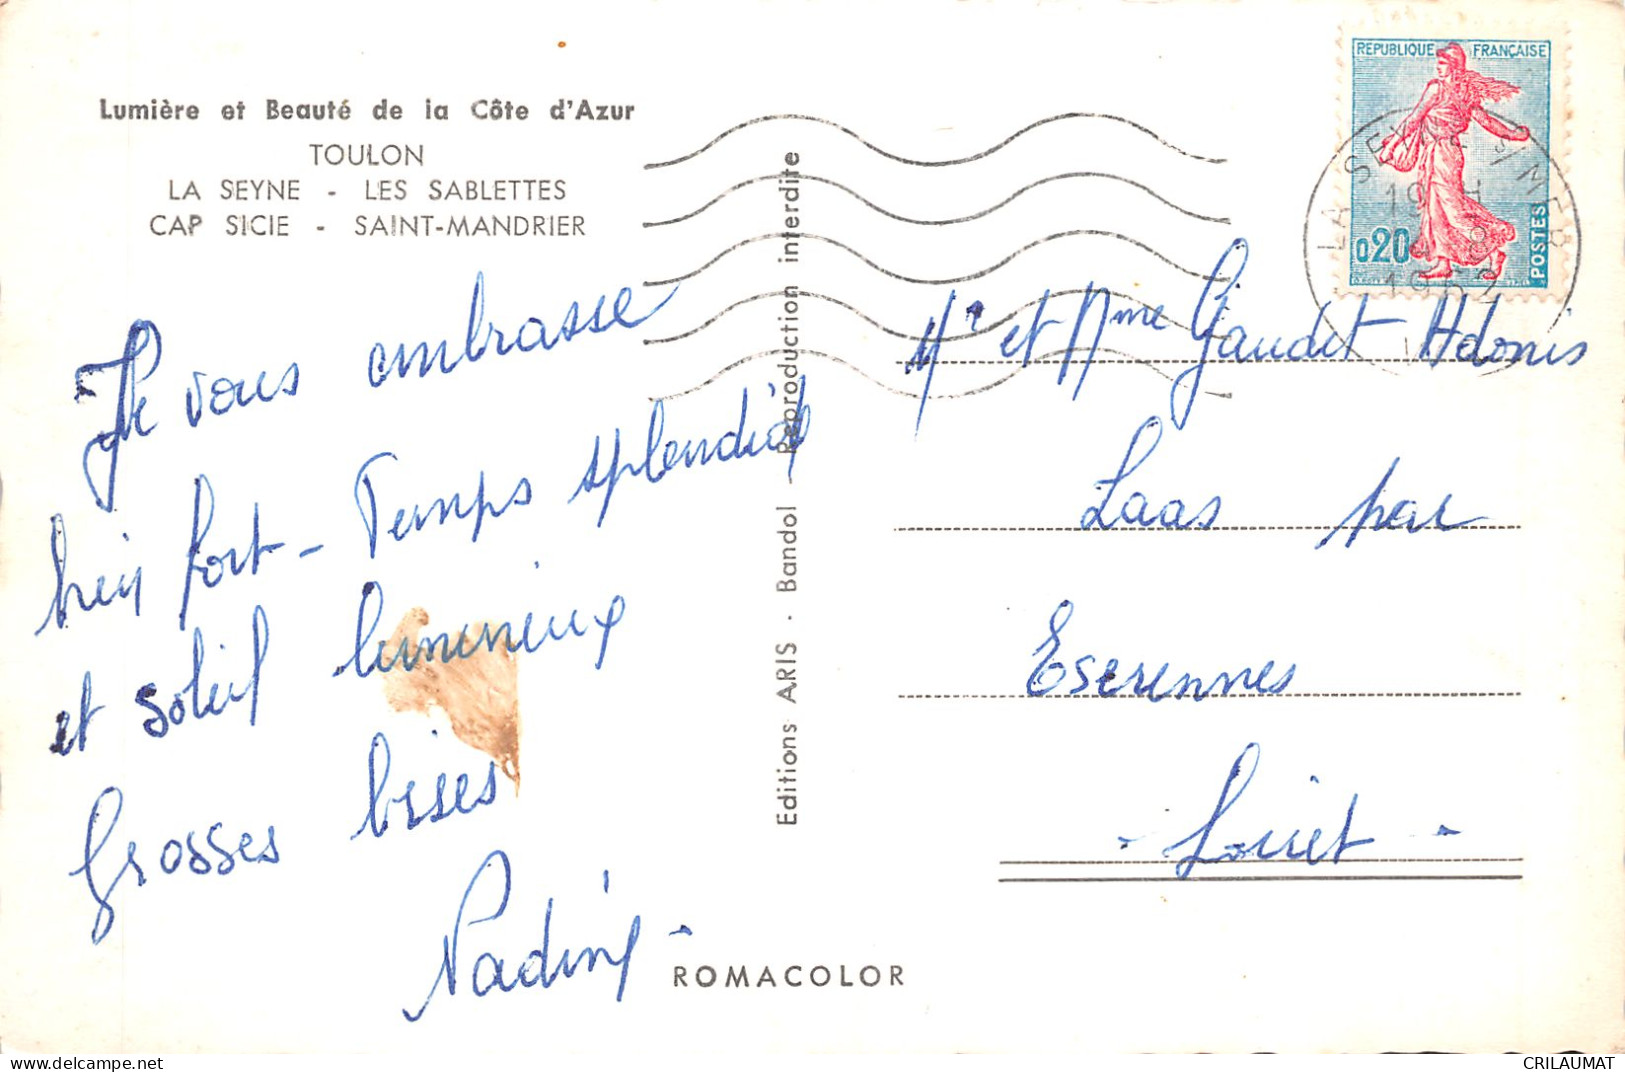 Lumière et Beauté de la Côte d'Azur
TOULON
LA SEYNE - LES SABLETTES
CAP SICIE - SAINT-MANDRIER
Je vous embrasse
bien fort - Temps splendide
et soleil lumineux
Grosses bises
Nadine -
Editions ARIS - Bandol - Reproduction interdite
ROMACOLOR
REPUBLIQUE FRANÇAISE
0,20
POSTES
LA SEYNE S/MER
19 H
8
1962
Mr et Mme Gaudet Adonis
Laas par
Escrennes
- Loiret -
www.delcampe.net
CRILAUMAT